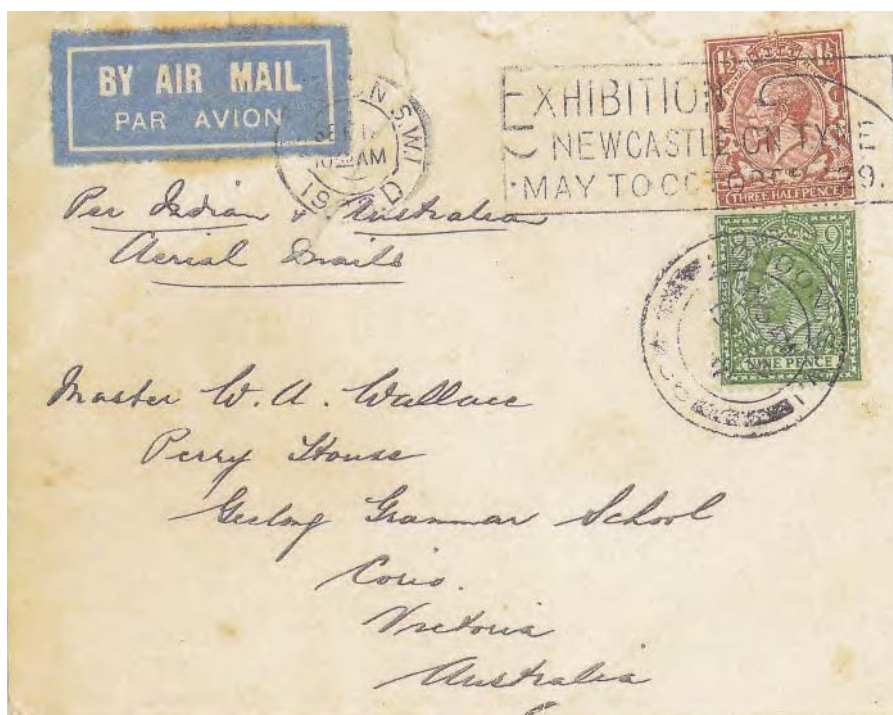 BY AIR MAIL
PAR AVION
N S.W.1
SEP 1
10 AM
19 D
EXHIBITION
NEWCASTLE ON TYNE
MAY TO OCTOBER 29.
THREE HALFPENCE
9
NINE PENCE
Per Indian & Australian
Aerial Mails
Master W. A. Wallace
Perry House
Geelong Grammar School
Corio.
Victoria
Australia